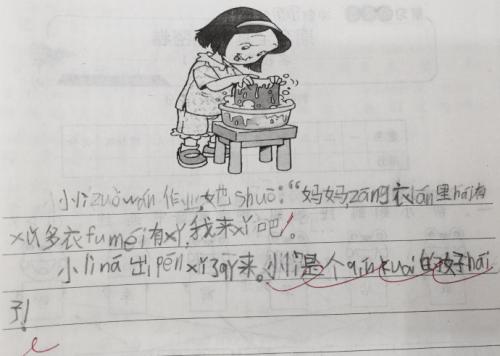 小li zuò wán 作yè,她shuō:“妈妈,zāng衣lán里hái有
xǔ多衣fu méi有xǐ,我来xǐ吧!
小li ná出pén xǐ了qǐ来。小li是个qín kuai的孩子hái
子!